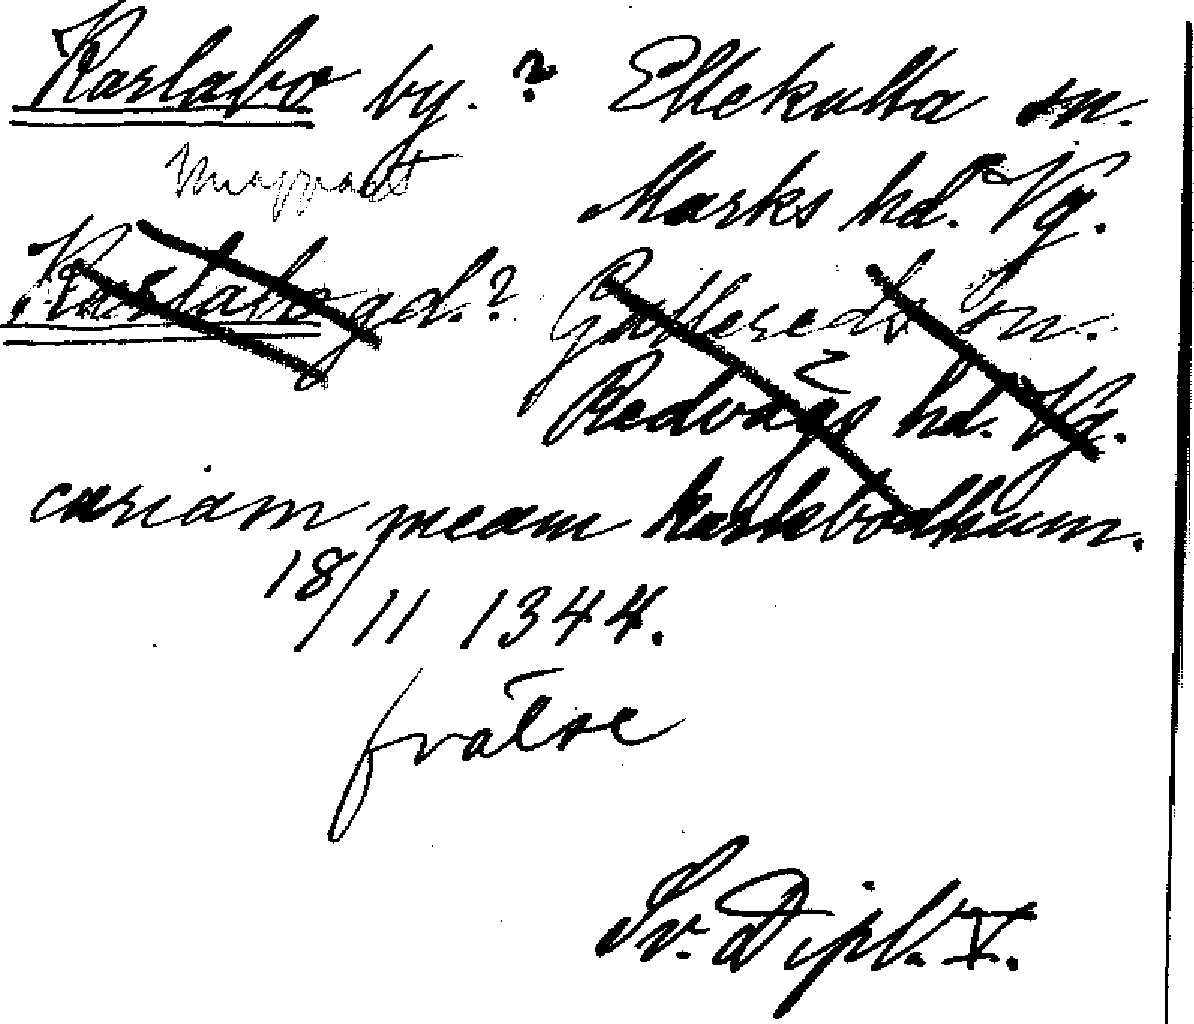 Karlabo by. ? Ellekulla sn.
Marks hd. Vg.
Karlabo gd.? Gullereds sn.
Redvägs hd. Vg.
curiam meam Karlabodhum.
18/11 1344.
frälse
Sv. Dipl. V.